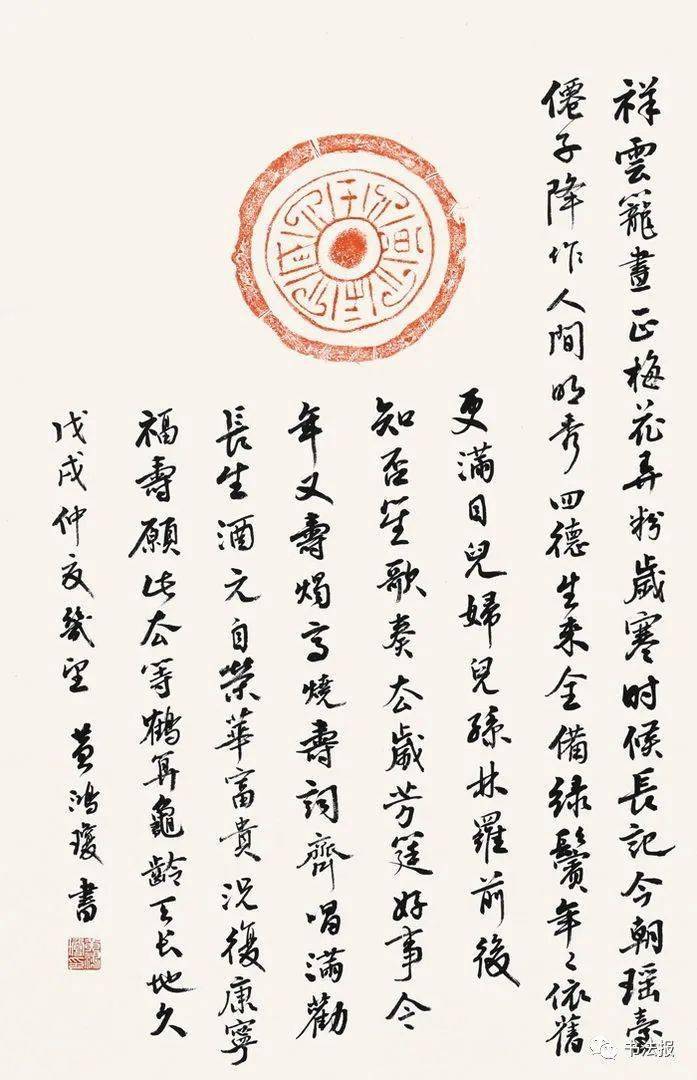 祥雲籠晝正梅花弄粉歲寒时候長記今朝瑶臺
僊子降作人間明秀四德生来全備緑鬢年〻依舊
更滿目兒婦兒孫林羅前後
知否笙歌奏去歲芳筵好事今
年又壽燭高燒壽詞齊唱滿勸
長生酒元自榮華富貴況復康寧
福壽願此去等鶴算龜齡天长地久
戊戌仲夏幾望 黄鴻瓊書
书法报